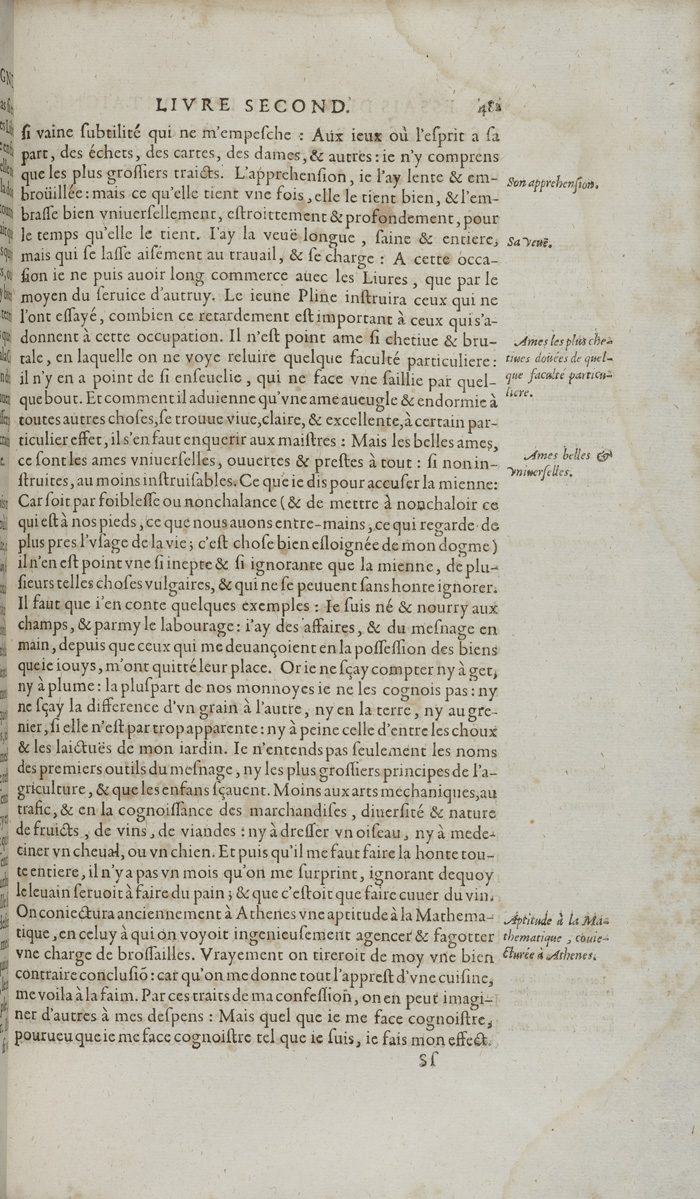 LIVRE SECOND.
ſi vaine ſubtilité qui ne m'empeſche : Aux ieux où l'eſprit a ſa
part, des échets, des cartes, des dames, & autres : ie n'y comprens
que les plus groſſiers traicts. L'apprehenſion, ie l'ay lente & em-
broüillée : mais ce qu'elle tient vne fois, elle le tient bien, & l'em-
braſſe bien vniuerſellement, eſtroittement & profondement, pour
le temps qu'elle le tient. I'ay la veuë longue, ſaine & entiere,
mais qui ſe laſſe aiſément au trauail, & ſe charge : A cette occa-
ſion ie ne puis auoir long commerce auec les Liures, que par le
moyen du ſeruice d'autruy. Le ieune Pline inſtruira ceux qui ne
l'ont eſſayé, combien ce retardement eſt important à ceux qui s'a-
donnent à cette occupation. Il n'eſt point ame ſi chetiue & bru-
tale, en laquelle on ne voye reluire quelque faculté particuliere :
il n'y en a point de ſi enſeuelie, qui ne face vne ſaillie par quel-
que bout. Et comment il aduienne qu'vne ame aueugle & endormie à
toutes autres choſes, ſe trouue viue, claire, & excellente, à certain par-
ticulier effet, il s'en faut enquerir aux maiſtres : Mais les belles ames,
ce ſont les ames vniuerſelles, ouuertes & preſtes à tout : ſi non in-
ſtruites, au moins inſtruiſables. Ce que ie dis pour accuſer la mienne:
Car ſoit par foibleſſe ou nonchalance (& de mettre à nonchaloir ce
qui eſt à nos pieds, ce que nous auons entre-mains, ce qui regarde de
plus pres l'vſage de la vie; c'eſt choſe bien eſloignée de mon dogme)
il n'en eſt point vne ſi inepte & ſi ignorante que la mienne, de plu-
ſieurs telles choſes vulgaires, & qui ne ſe peuuent ſans honte ignorer.
Il faut que i'en conte quelques exemples : Ie ſuis né & nourry aux
champs, & parmy le labourage : i'ay des affaires, & du meſnage en
main, depuis que ceux qui me deuançoient en la poſſeſſion des biens
que ie iouys, m'ont quitté leur place. Or ie ne ſçay compter ny à get,
ny à plume : la pluſpart de nos monnoyes ie ne les cognois pas : ny
ne ſçay la difference d'vn grain à l'autre, ny en la terre, ny au gre-
nier, ſi elle n'eſt par trop apparente : ny à peine celle d'entre les choux
& les laictuës de mon iardin. Ie n'entends pas ſeulement les noms
des premiers outils du meſnage, ny les plus groſſiers principes de l'a-
griculture, & que les enfans ſçauent. Moins aux arts mechaniques, au
trafic, & en la cognoiſſance des marchandiſes, diuerſité & nature
de fruicts, de vins, de viandes : ny à dreſſer vn oiſeau, ny à mede-
ciner vn cheual, ou vn chien. Et puis qu'il me faut faire la honte tou-
te entiere, il n'y a pas vn mois qu'on me ſurprint, ignorant dequoy
le leuain ſeruoit à faire du pain ; & que c'eſtoit que faire cuuer du vin.
On coniectura anciennement à Athenes vne aptitude à la Mathema-
tique, en celuy à qui on voyoit ingenieuſement agencer & fagotter
vne charge de broſſailles. Vrayement on tireroit de moy vne bien
contraire concluſiõ : car qu'on me donne tout l'appreſt d'vne cuiſine,
me voila à la faim. Par ces traits de ma confeſſion, on en peut imagi-
ner d'autres à mes deſpens : Mais quel que ie me face cognoiſtre,
pourueu que ie me face cognoiſtre tel que ie ſuis, ie fais mon effect.
Sſ
Son apprehenſion.
Sa veuë.
Ames les plus che-
tiues doüées de quel-
que faculté particu-
liere.
Ames belles &
vniuerſelles.
Aptitude à la Ma-
thematique, conie-
cturée à Athenes.